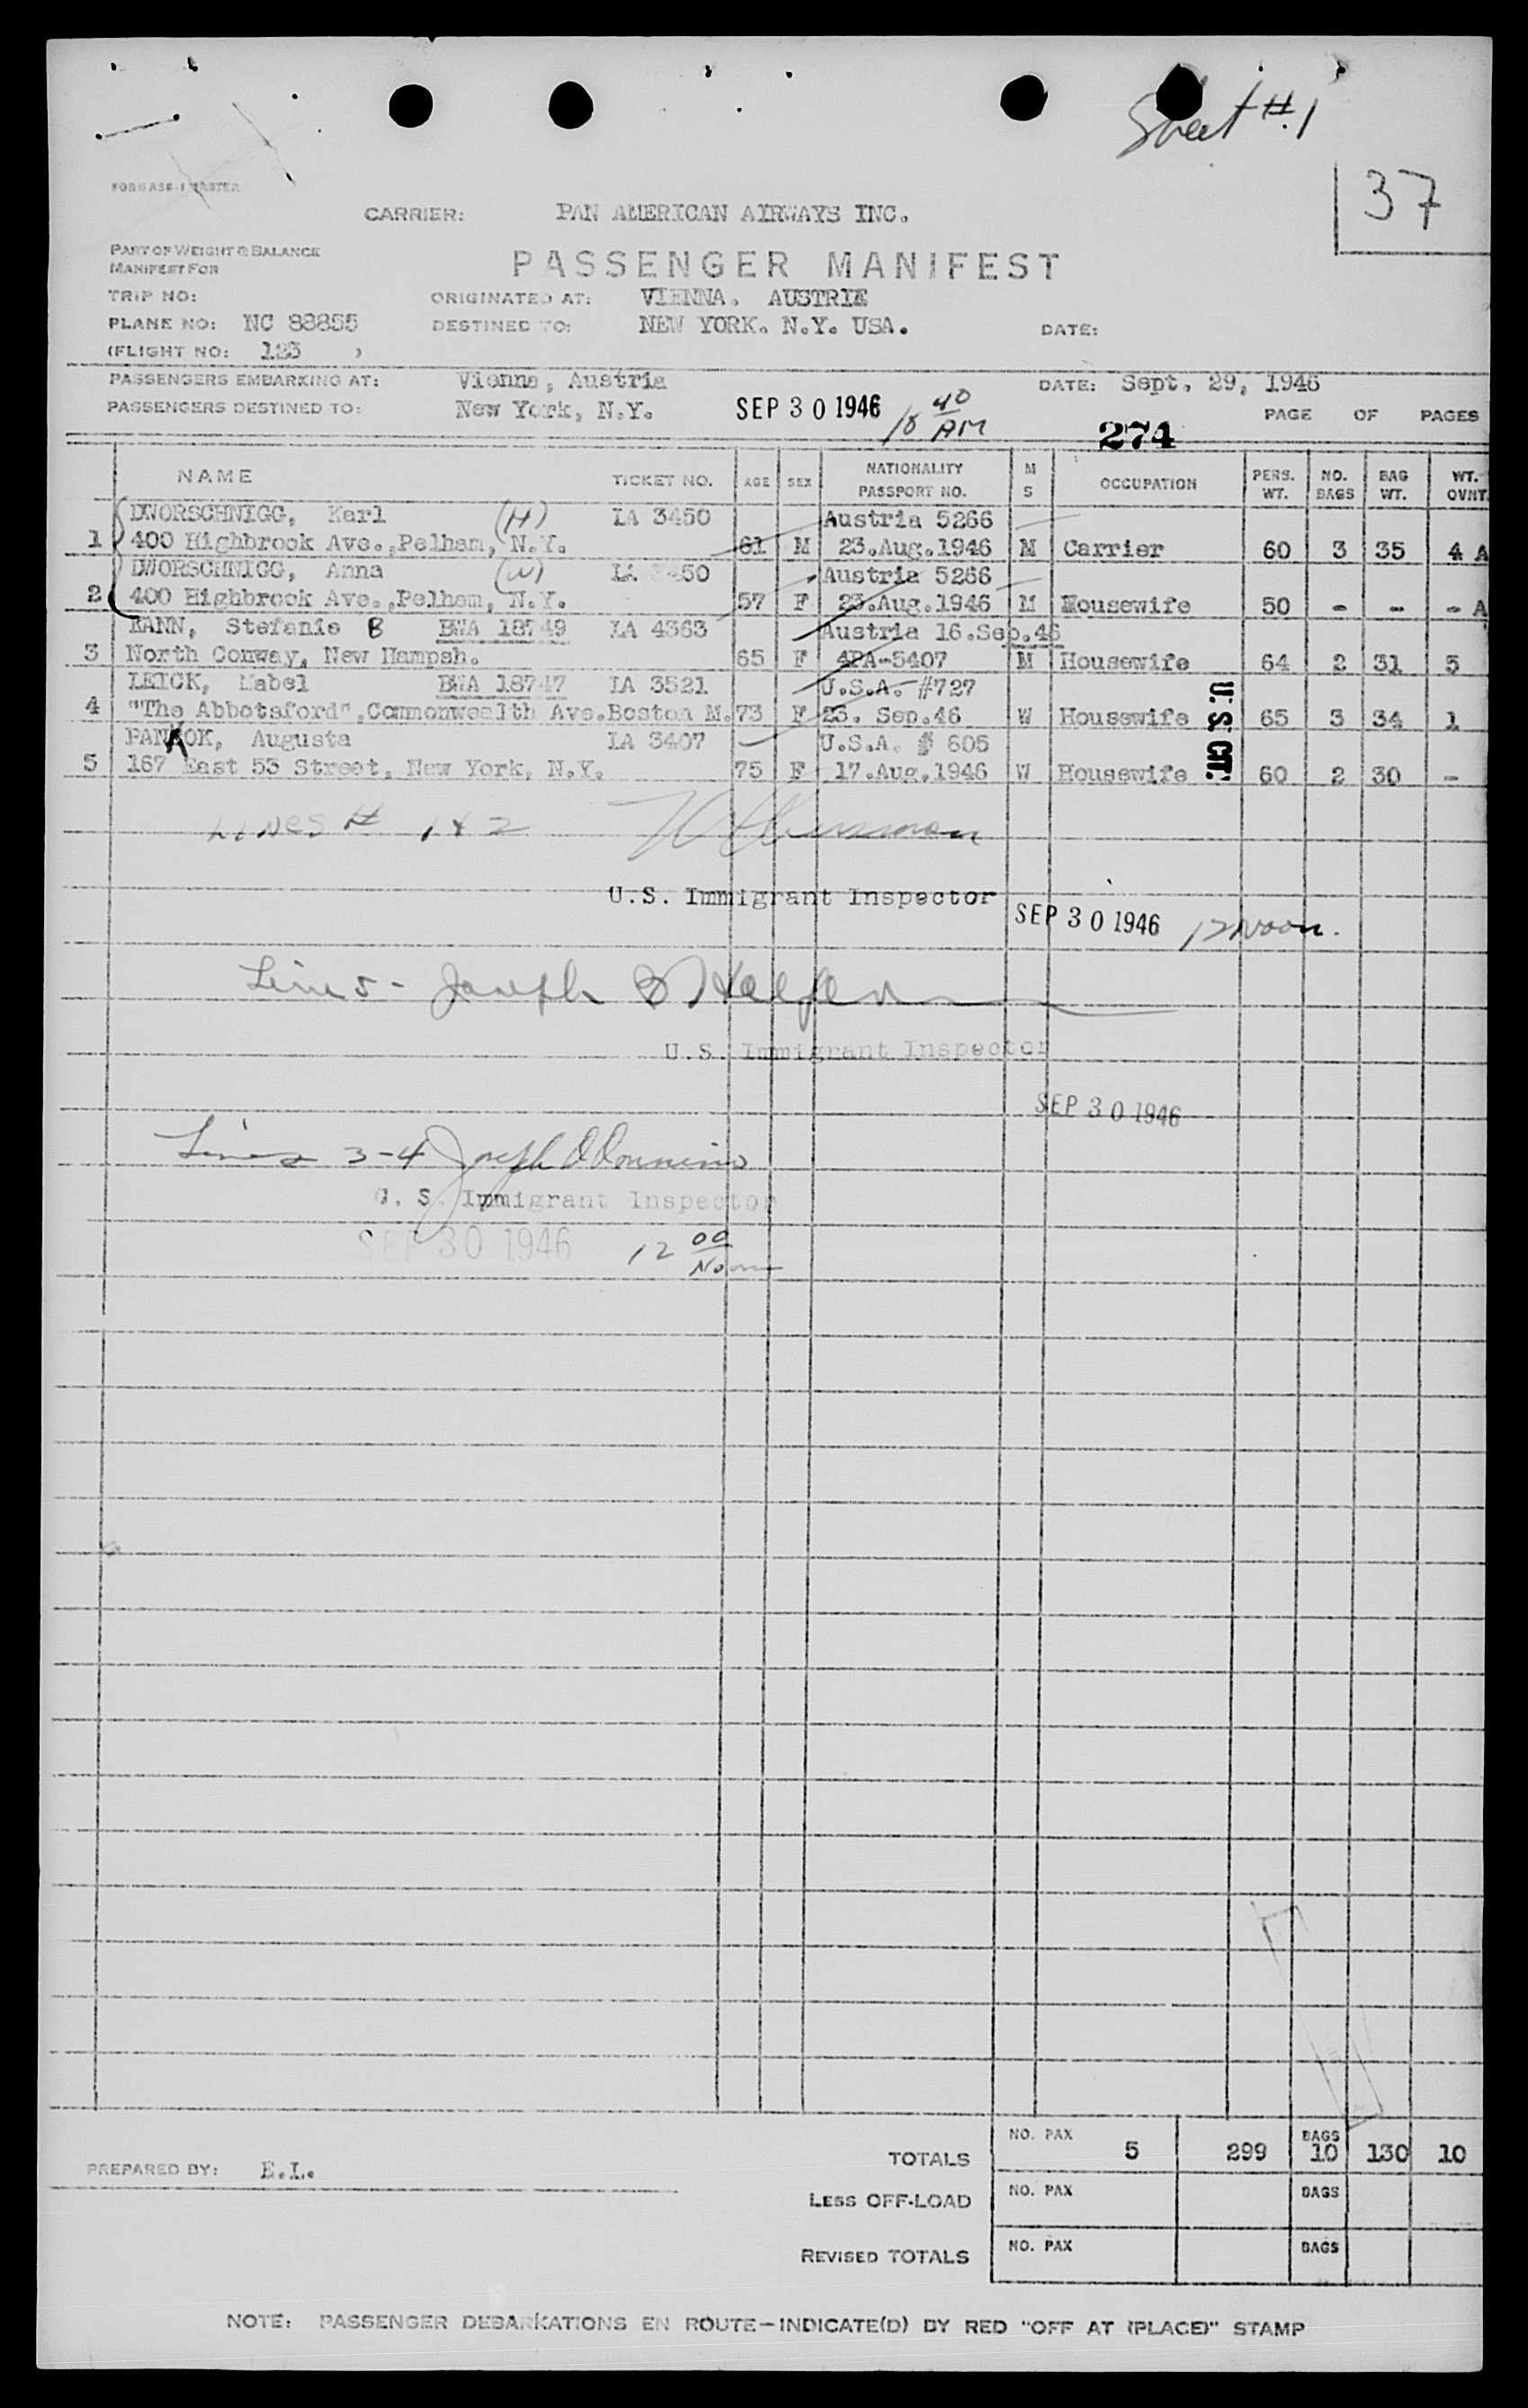 Sheet #1
37
CARRIER: PAN AMERICAN AIRWAYS INC.
PART OF WEIGHT & BALANCE
MANIFEST FOR
PASSENGER MANIFEST
TRIP NO: ORIGINATED AT: VIENNA. AUSTRIA
PLANE NO: NC 88855 DESTINED TO: NEW YORK. N.Y. USA. DATE:
(FLIGHT NO: 123 )
PASSENGERS EMBARKING AT: Vienna, Austria DATE: Sept. 29, 1946
PASSENGERS DESTINED TO: New York, N.Y. SEP 30 1946 10 40 AM PAGE OF PAGES
274
NAME TICKET NO. AGE SEX NATIONALITY PASSPORT NO. M S OCCUPATION PERS. WT. NO. BAGS BAG WT. WT. OVHT.
DWORSCHNIGG, Karl (H) IA 3450 Austria 5266
1 400 Highbrook Ave.,Pelham, N.Y. 61 M 23.Aug.1946 M Carrier 60 3 35 4 A
DWORSCHNIGG, Anna (W) IA 3450 Austria 5266
2 400 Highbrook Ave.,Pelham, N.Y. 57 F 23.Aug.1946 M Housewife 50 - - - A
Stefanie B BWA 18749 IA 4363 Austria 16.Sep.46
3 North Conway, New Hampsh. 65 F 4PA-5407 M Housewife 64 2 31 5
LEICK, Mabel BWA 18747 IA 3521 U.S.A. #727
4 "The Abbotsford",Commonwealth Ave.Boston M. 73 F 23. Sep.46 W Housewife 65 3 34 1
Augusta IA 3407 U.S.A. # 605
5 167 East 53 Street, New York, N.Y. 75 F 17.Aug.1946 W Housewife 60 2 30 -
U.S. CIT.
Lines # 1 & 2
U.S. Immigrant Inspector
SEP 30 1946 12 Noon.
Line 5 - Joseph
U.S. Immigrant Inspector
SEP 30 1946
Lines 3-4 Joseph
U. S. Immigrant Inspector
SEP 30 1946 12 00 Noon
TOTALS NO. PAX 5 299 BAGS 10 130 10
PREPARED BY: E.L.
LESS OFF-LOAD NO. PAX BAGS
REVISED TOTALS NO. PAX BAGS
NOTE: PASSENGER DEBARKATIONS EN ROUTE—INDICATE(D) BY RED "OFF AT (PLACE)" STAMP